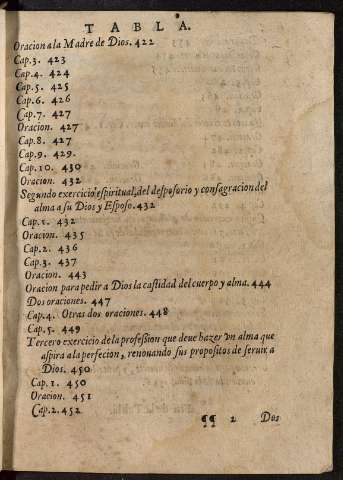 TABLA.
Oracion a la Madre de Dios. 422
Cap. 3. 423
Cap. 4. 424
Cap. 5. 425
Cap. 6. 426
Cap. 7. 427
Oracion. 427
Cap. 8. 427
Cap. 9. 429.
Cap. 10. 430
Oracion. 432
Segundo exercicio espiritual, del desposorio y consagracion del
alma a su Dios y Esposo. 432
Cap. 1. 432
Oracion. 435
Cap. 2. 436
Cap. 3. 437
Oracion. 443
Oracion para pedir a Dios la castidad del cuerpo y alma. 444
Dos oraciones. 447
Cap. 4. Otras dos oraciones. 448
Cap. 5. 449
Tercero exercicio de la profession que deue hazer vn alma que
aspira a la perfecion, renouando sus propositos de seruir a
Dios. 450
Cap. 1. 450
Oracion. 451
Cap. 2. 452
¶¶ 2 Dos